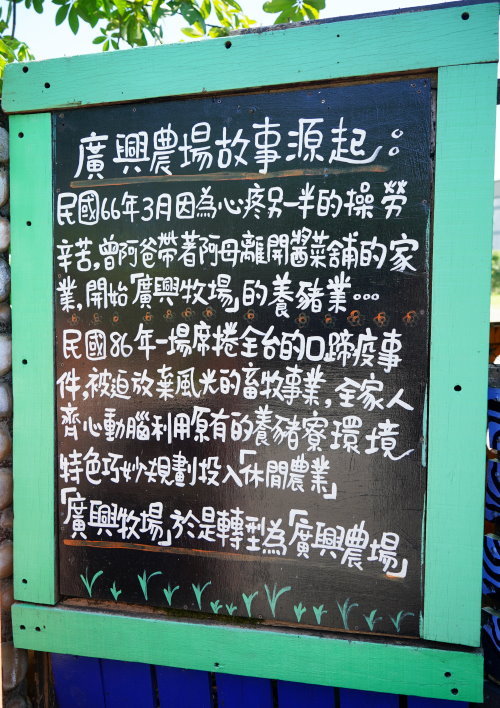 廣興農場故事源起：
民國66年3月因為心疼另一半的操勞
辛苦，曾阿爸帶著阿母離開醬菜舖的家
業，開始「廣興牧場」的養豬業…
民國86年一場席捲全台的口蹄疫事
件，被迫放棄風光的畜牧事業，全家人
齊心動腦利用原有的養豬寮環境
特色巧妙規劃投入「休閒農業」
「廣興牧場」於是轉型為「廣興農場」